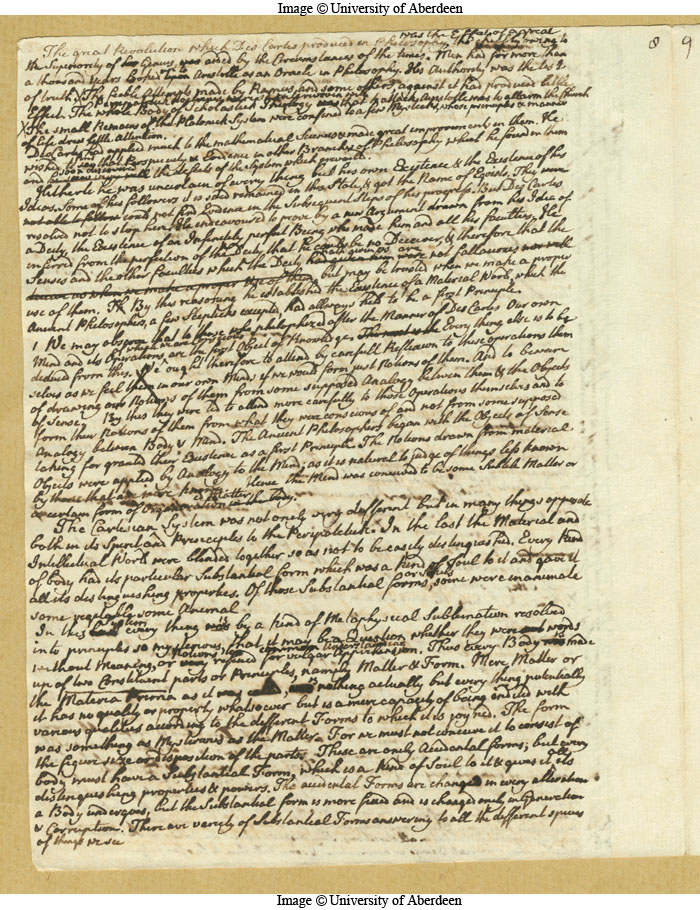 Image © University of Aberdeen
8 9
was the Effect of a great
The great Revolution which Des Cartes produced in Philosophy,
the Superiority of Genius, was aided by the Circumstances of the times. Men had for more than
a thousand years looked upon Aristotle as an Oracle in Philosophy. His Authority was the test
of truth. The feeble Attempts made by Ramus, and some others, against it had produced little
Effect. The whole Body of Scholastick Theology was that to attack Aristotle was to alarm the Church
The small Remains of the Platonick System were confined to a few Mysticks, whose principles & manner
of life drew little attention.
Des Cartes had applied much to the mathematical Sciences & made great improvement in them. He
wished to find that Perspicuity & Evidence in other Branches of Philosophy which he found in them
and the defects of the System which prevailed.
Hitherto he was uncertain of every thing but his own Existence & the Existence of his
Ideas. Some of his followers it is said remained in this State, & got the Name of Egoists. They were
not able to find Evidence in the Subsequent Steps of his progress. But Des Cartes
resolved not to stop here. He endeavoured to prove by a new Argument drawn from his Idea of
a Deity, the Existence of an Infinitely perfect Being who made him and all his faculties. He
inferred from the perfection of the Deity that he could be no Deceiver, & therefore that the
Senses and the other faculties which the Deity hath given us are not fallacious
but may be trusted when we make a proper
use of them. By this reasoning he established the Existence of a Material World, which the
Ancient Philosophers, a few Skepticks excepted, had allways to be a first Principle.
1 We may observe that to those who philosophized after the Manner of Des Cartes Our own
Mind and its Operations, are the first Object of Knowledge. Every thing else is to be
deduced from this. We ought therefore to attend by carefull Reflexion to these operations them
selves as we feel them in our own Minds if we would form just Notions of them. And to beware
of drawing our Notions of them from some supposed Analogy between them & the Objects
of Sense. By this they were led to attend more carefully to those Operations themselves and to
form their Notions of them from what they were conscious of and not from some supposed
Analogy between Body & Mind. The Ancient Philosophers began with the Objects of Sense
taking for granted their Existence as a first Principle. The Notions drawn from material
Objects were applied by Analogy to the Mind; as it is natural to judge of things less known
by those that are more known. Hence the Mind was conceived to be some Subtile Matter or
a certain form of Organization in the Body.
The Cartesian System was not onely very different but in many things opposite
both in its Spirit and Principles to the Peripatetick. In the last the Material and
Intellectual World were blended together so as not to be easily distinguished. Every kind
of body had its particular Substantial form which was a kind of Soul to it and gave it
all its distinguishing properties. Of those Substantial forms, some were inanimate
some vegetable some Animal.
In this System every thing was by a kind of Metaphysical Sublimation resolved
into principles so mysterious, that it may be a Question whether they were words
without meaning, or refined for vulgar Apprehension. Thus every Body was made
up of two Constituent parts or Principles, namely Matter & Form. Mere Matter or
the Materia Prima as it was, was nothing actually, but every thing potentially
it has no quality or property whatsoever but is a mere capacity of being ended with
various qualities according to the different Forms to which it is joyned. The form
was something as Mysterious as the Matter. For we must not conceive it to consist of
the figure size or disposition of the parts. These are onely Accidental forms; but every
body must have a Substantial Form, which is a kind of Soul to it & gives it all its
distinguishing properties & powers. The accidental Forms are changed in every alteration
a Body undergoes; but the Substantial form is more fixed and is changed onely in Generation
& Corruption. There are variety of Substantial Forms answering to all the different species
of things we see
Image © University of Aberdeen